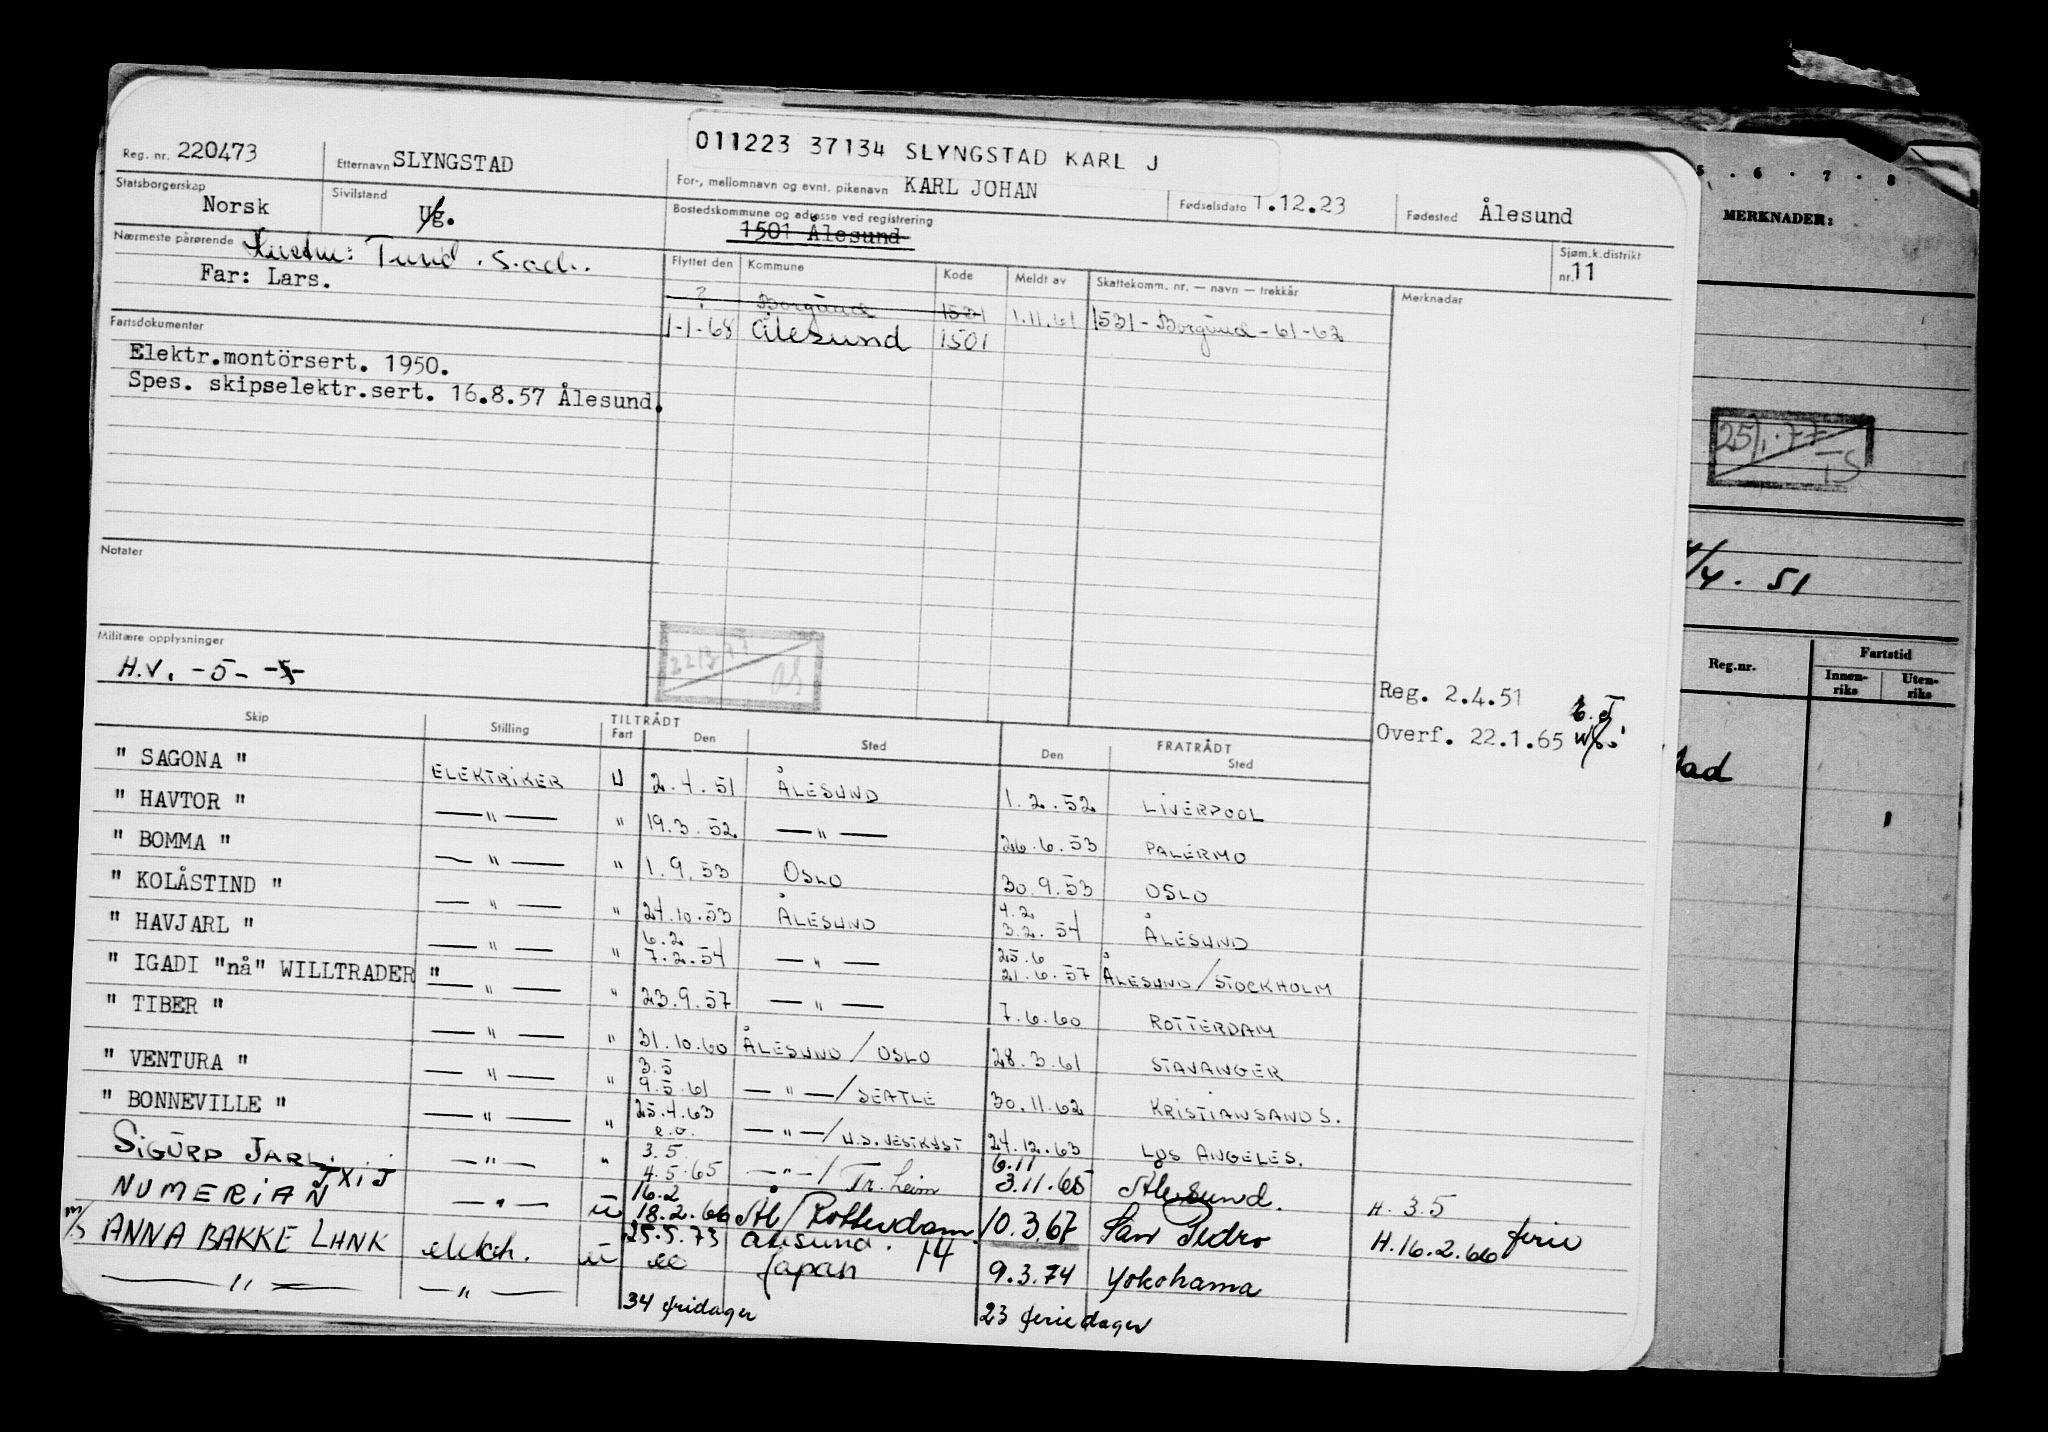 011223 37134 SLYNGSTAD KARL J
Reg. nr. 220473
Etternavn SLYNGSTAD
For-, mellomnavn og evnt. pikenavn KARL JOHAN
Fødselsdato 1.12.23
Fødested Ålesund
Statsborgerskap Norsk
Sivilstand Ug.
Bostedskommune og adresse ved registrering
1501 Ålesund
Sjøm.k.distrikt
nr. 11
Nærmeste pårørende
Far: Lars.
Flyttet den Kommune Kode Meldt av Skattekomm. nr. — navn — trekkår Merknader
? Borgund 1531 1.11.61 1531 - Borgund - 61-62
1-1-68 Ålesund 1501
Fartsdokumenter
Elektr.montörsert. 1950.
Spes. skipselektr.sert. 16.8.57 Ålesund.
Notater
Militære opplysninger
H.V. -5-
Reg. 2.4.51
Overf. 22.1.65
Skip Stilling TILTRÅDT Fart Den Sted FRATRÅDT Den Sted
" SAGONA " ELEKTRIKER U 2.4.51 ÅLESUND 1.2.52 LIVERPOOL
" HAVTOR " — " — " 19.3.52 — " — 26.6.53 PALERMO
" BOMMA " — " — " 1.9.53 OSLO 30.9.53 OSLO
" KOLÅSTIND " — " — " 24.10.53 ÅLESUND 4.2 3.2.54 ÅLESUND
" HAVJARL " — " — " 6.2 7.2.54 — " — 25.6 21.6.57 ÅLESUND/STOCKHOLM
" IGADI "nå" WILLTRADER " — " — " 23.9.57 — " — 7.6.60 ROTTERDAM
" TIBER " — " — " 31.10.60 ÅLESUND / OSLO 28.3.61 STAVANGER
" VENTURA " — " — " 3.5 9.5.61 — " — / SEATLE 30.11.62 KRISTIANSAND S.
" BONNEVILLE " — " — " 25.4.63 e.o. — " — / U.S. VESTKYST 24.12.63 LOS ANGELES.
SIGURD JARL. — " — " 3.5 4.5.65 — " — / Tr.heim 6.11 3.11.65 Ålesund. H. 3.5
NUMERIAN JXIJ — " — u 16.2 18.2.66 Ål/Rotterdam 10.3.67 San Pedro H.16.2.66 ferie
m/s ANNA BAKKE LANK elektr. u 25.5.73 Ålesund. 14
— " — — " — u ee Japan 9.3.74 Yokohama
34 fridager 23 feriedager
5 . 6 . 7 . 8
MERKNADER:
25/1.77
TS
/4. 51
Reg.nr. Fartstid
Innen-riks Uten-riks